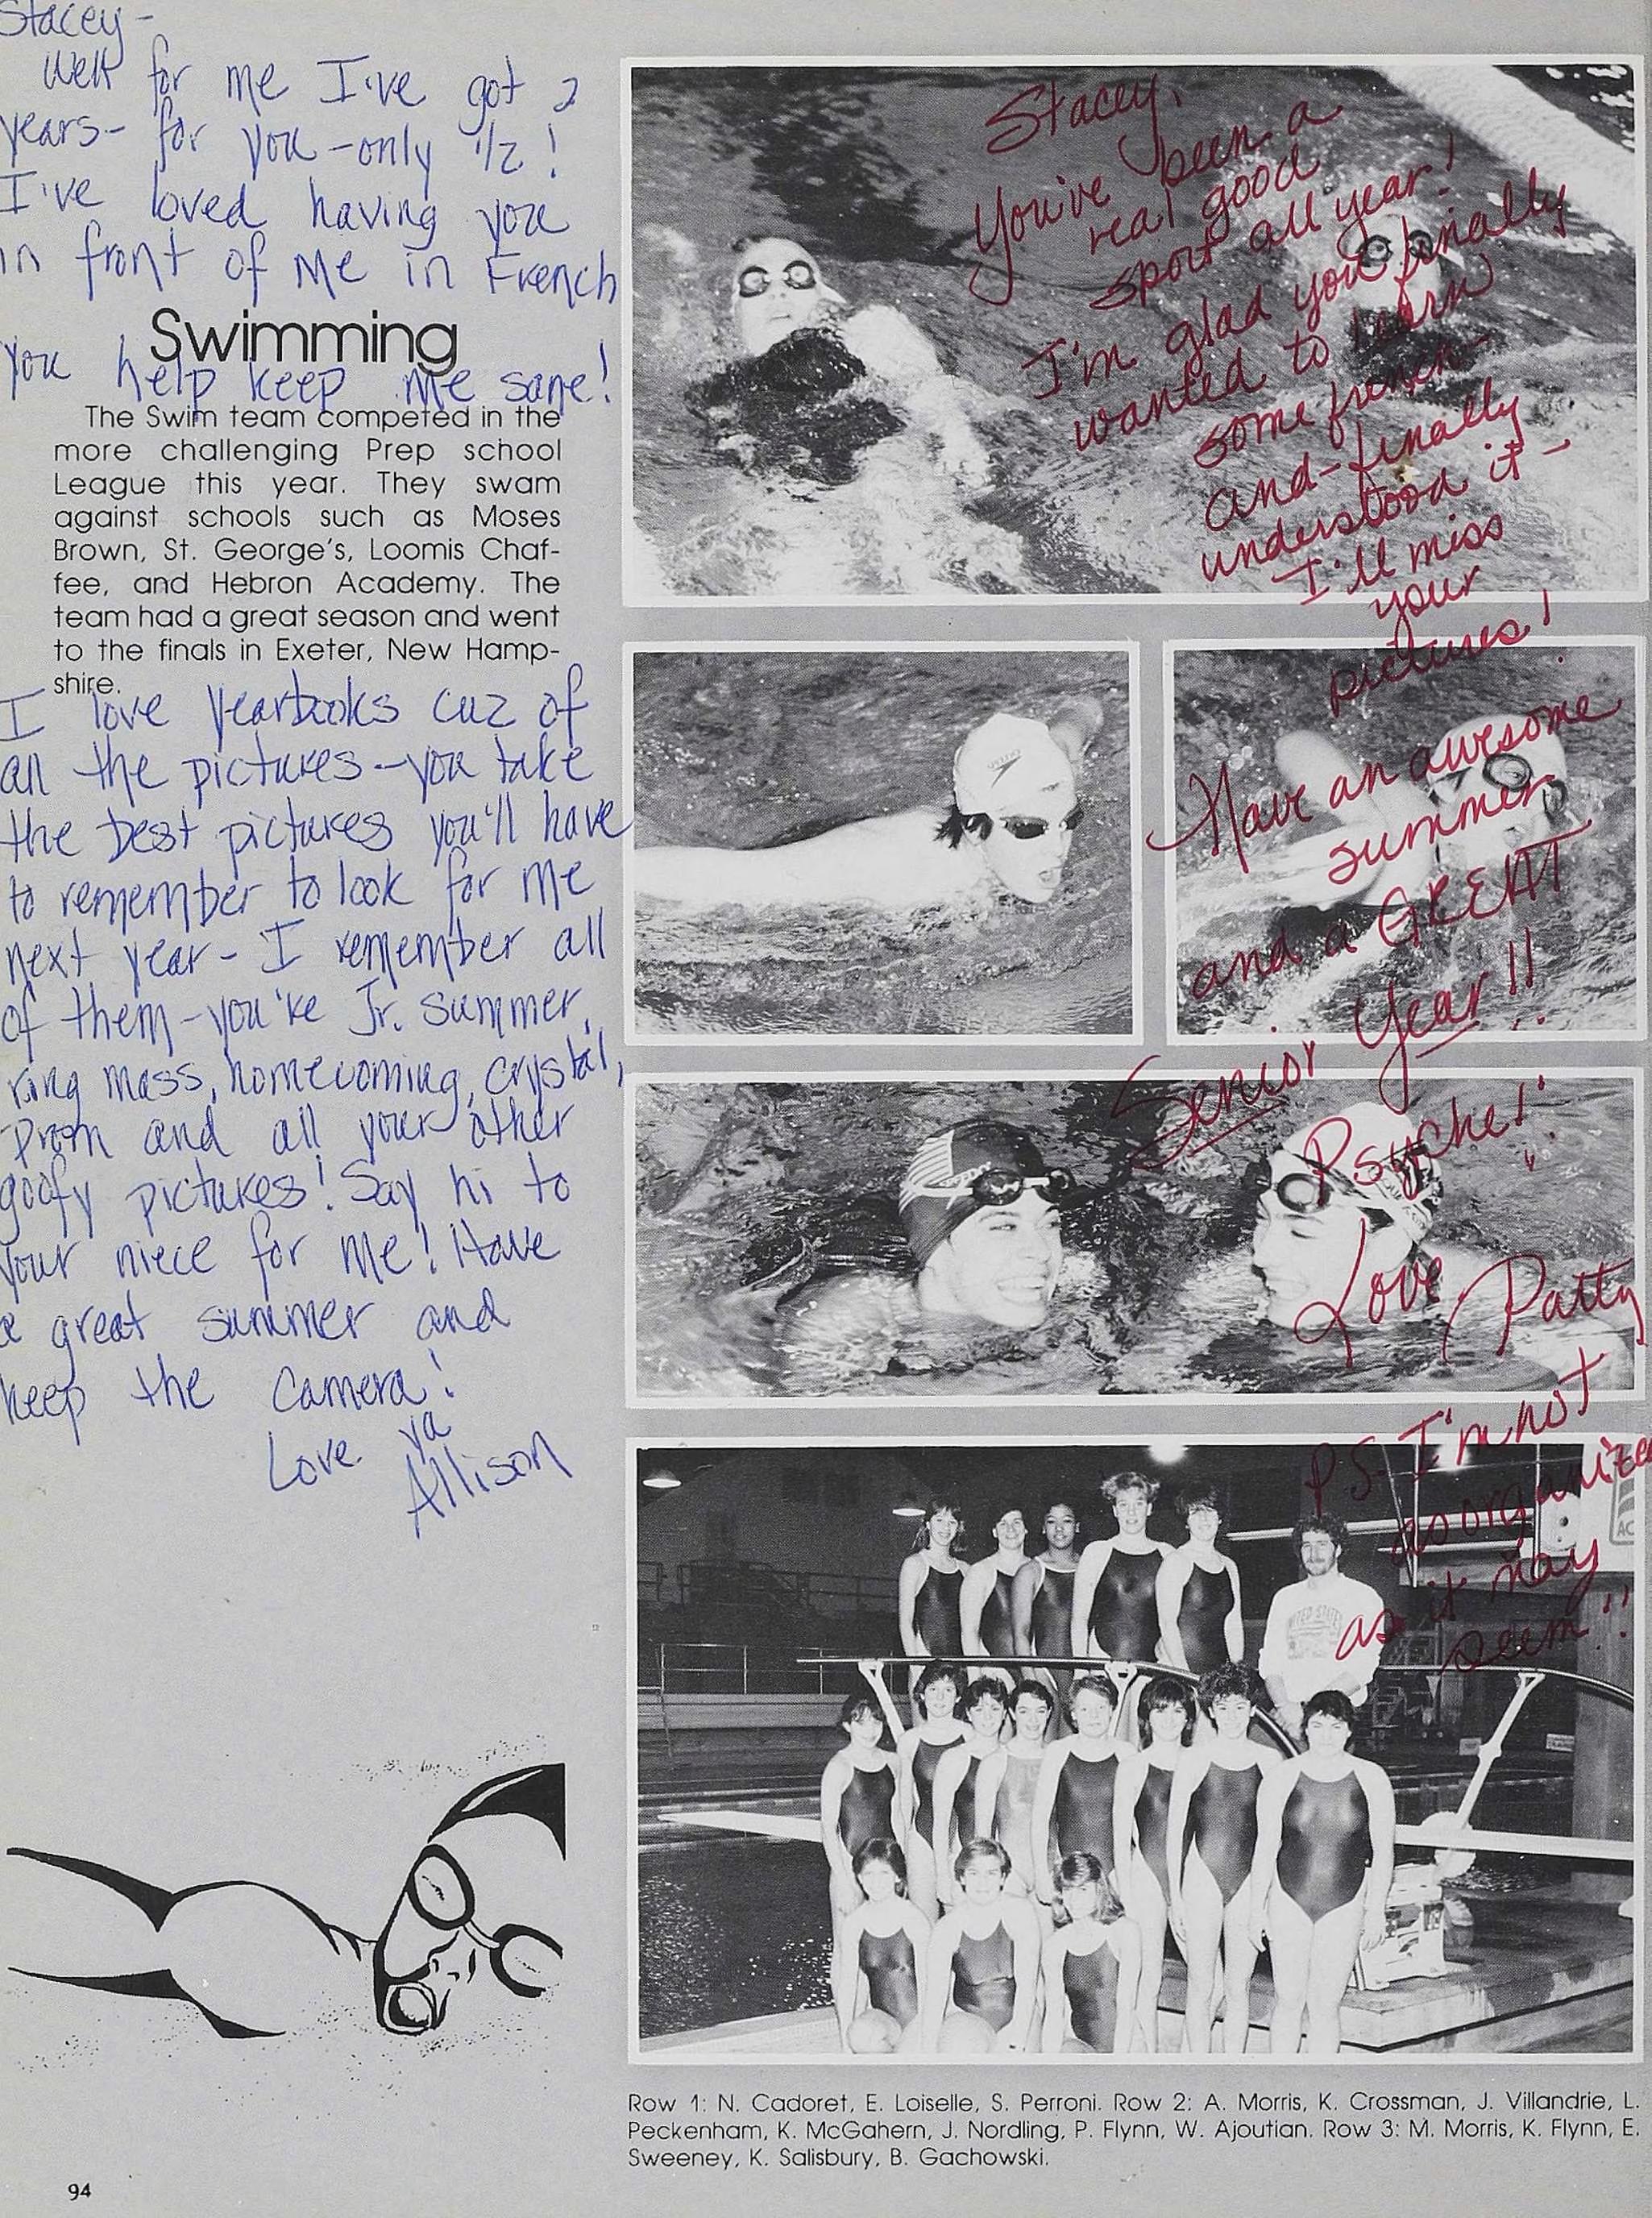 Stacey-
Well for me I've got 2
years- for you-only 1/2!
I've loved having you
in front of me in French
you help keep me sane!
Swimming
The Swim team competed in the
more challenging Prep school
League this year. They swam
against schools such as Moses
Brown, St. George's, Loomis Chaf-
fee, and Hebron Academy. The
team had a great season and went
to the finals in Exeter, New Hamp-
shire.
I love yearbooks cuz of
all the pictures-you take
the best pictures you'll have
to remember to look for me
next year- I remember all
of them-you're Jr. summer,
ring mass, homecoming, crystal,
Prom and all your other
goofy pictures! Say hi to
your niece for me! Have
a great summer and
keep the camera!
Love ya
Allison
Stacey,
You've been a
real good
sport all year!
I'm glad you finally
wanted to learn
some french-
and-finally
understood it-
I'll miss
your
pictures!
Have an awesome
summer
and a GREAT
Senior Year!!
Psyche!!
Love Patty
P.S. I'm not
so organized
as it may
seem!!
SPEEDO
UNITED STATES
Row 1: N. Cadoret, E. Loiselle, S. Perroni. Row 2: A. Morris, K. Crossman, J. Villandrie, L.
Peckenham, K. McGahern, J. Nordling, P. Flynn, W. Ajoutian. Row 3: M. Morris, K. Flynn, E.
Sweeney, K. Salisbury, B. Gachowski.
94